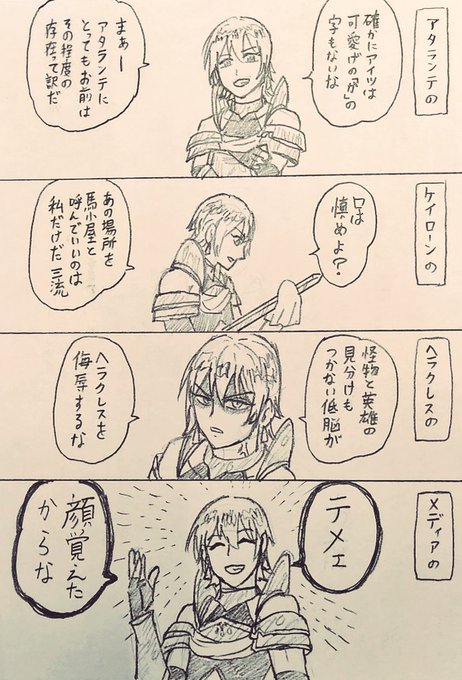 アタランテの
確かにアイツは
可愛げの「が」の
字もないな
まぁー
アタランテに
とってもお前は
その程度の
存在って訳だ
ケイローンの
口は
慎めよ？
あの場所を
馬小屋と
呼んでいいのは
私だけだ 三流
ヘラクレスの
怪物と英雄の
見分けも
つかない低脳が
ヘラクレスを
侮辱するな
メディアの
テメェ
顔覚えた
からな